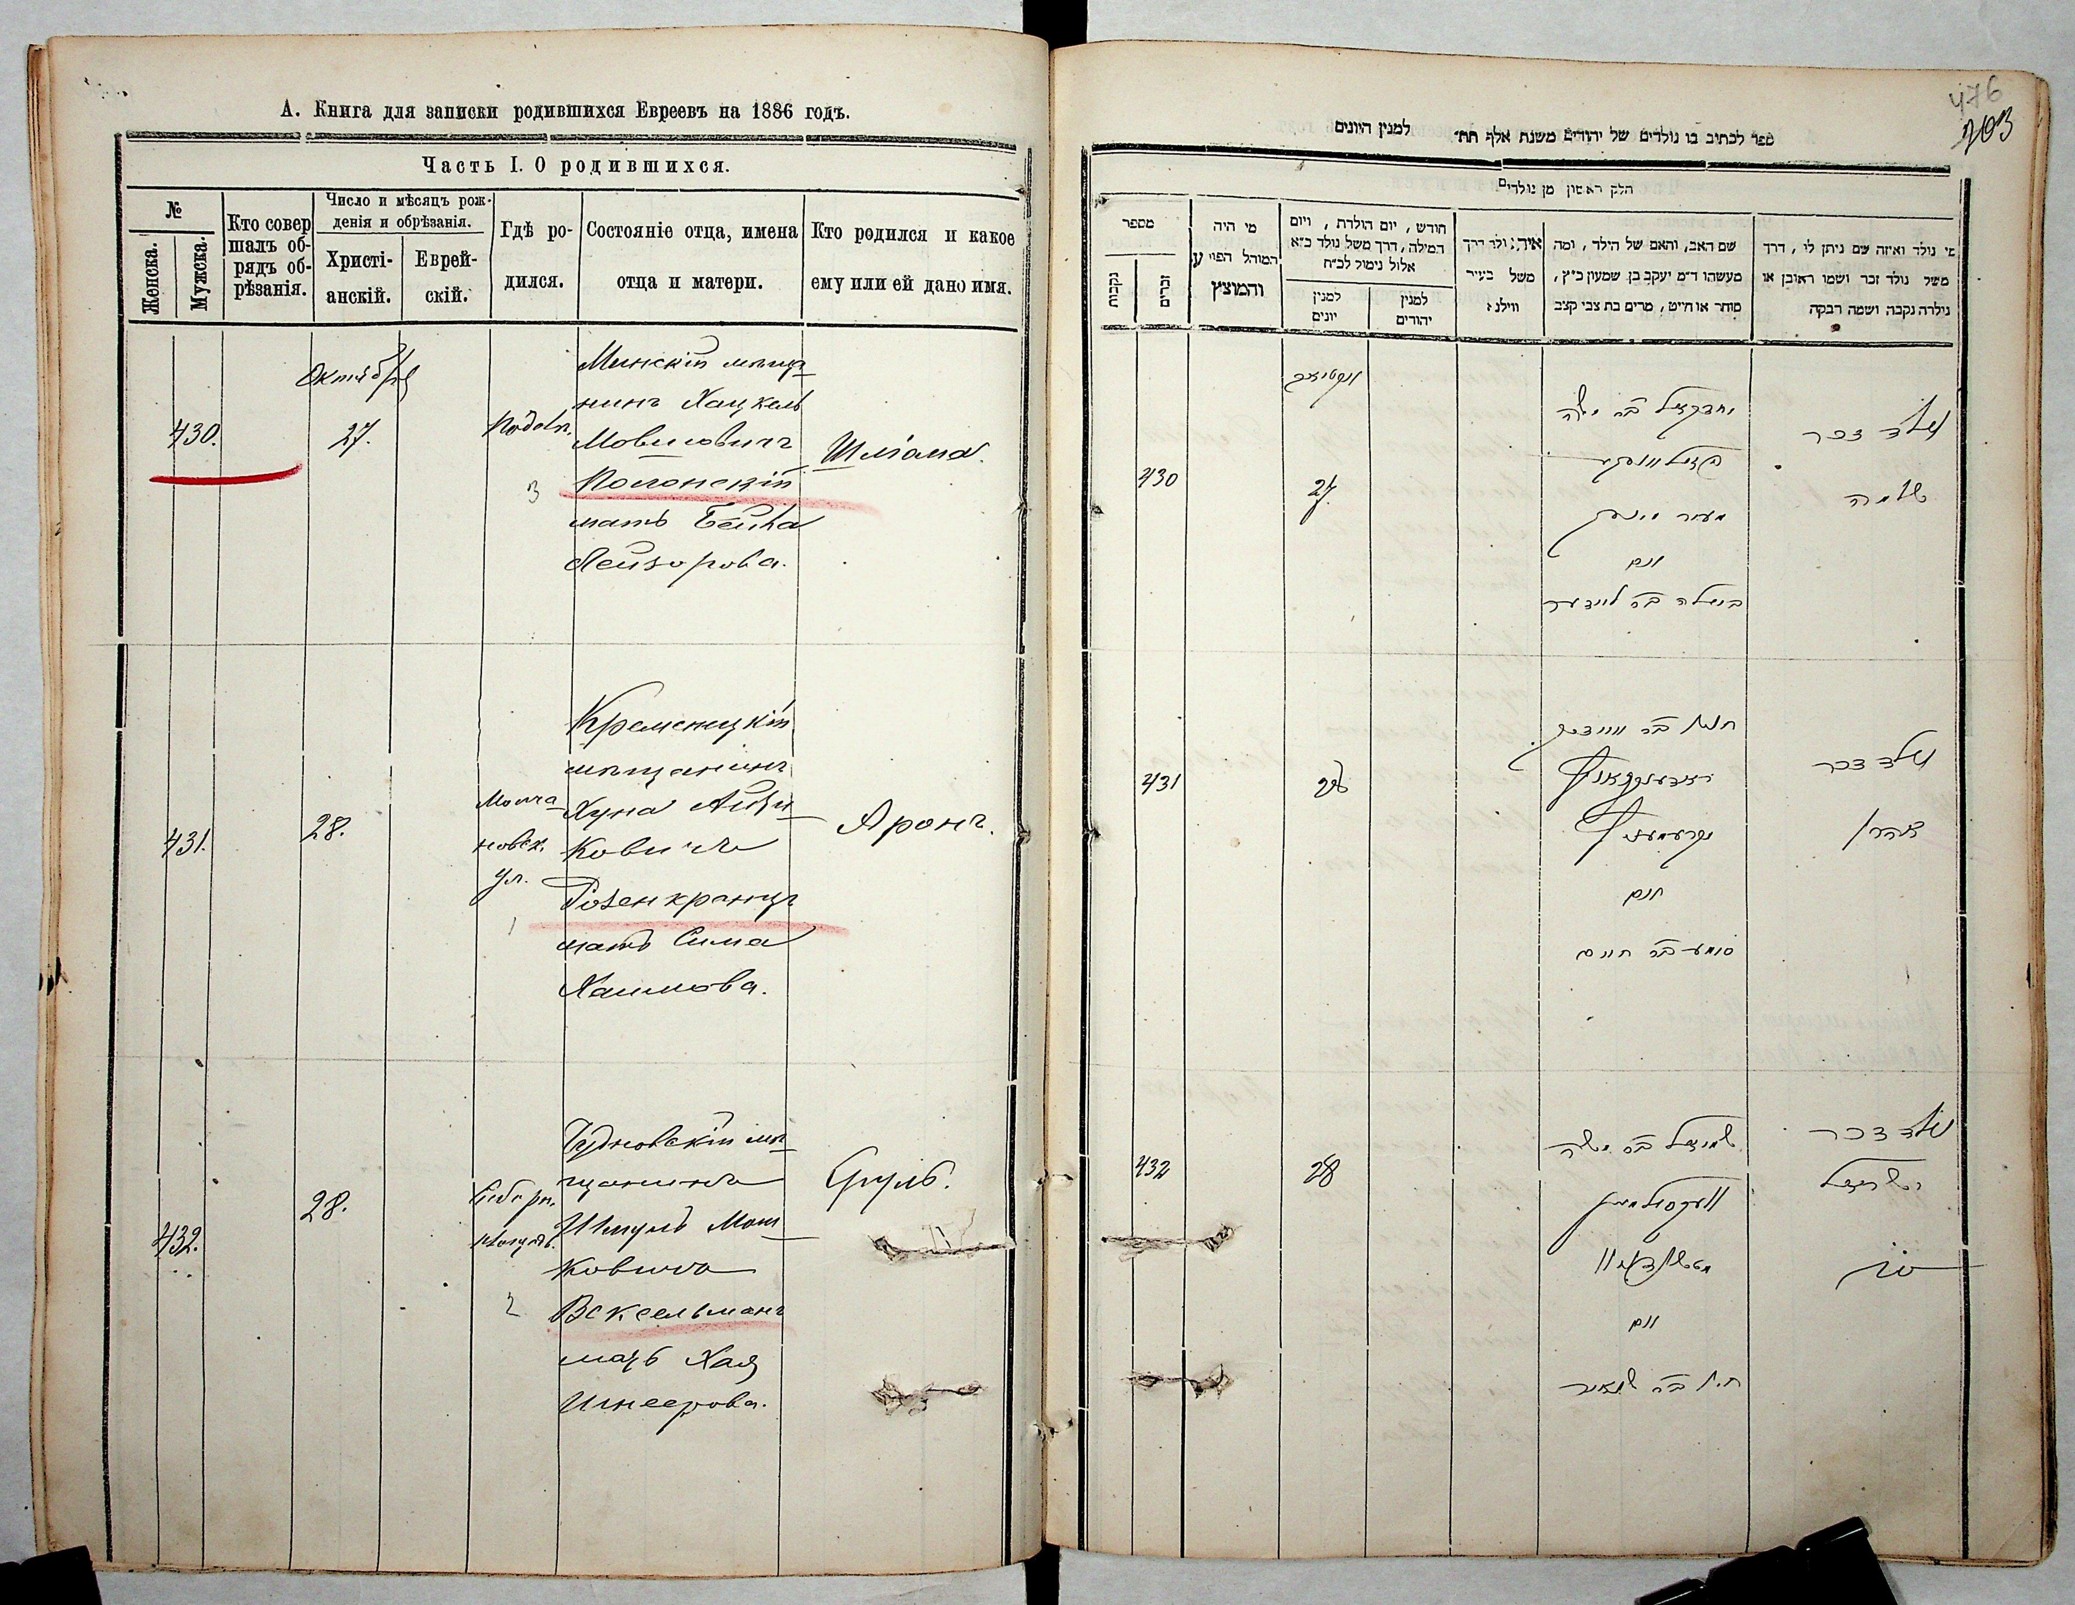 А. Книга для записки родившихся Евреевъ на 1886 годъ.
Часть I. О родившихся.
№
Женска.
Мужска.
Кто совер
шалъ об-
рядъ об-
рѣзанія.
Число и мѣсяцъ рож-
денія и обрѣзанія.
Христі-
анскій.
Еврей-
скій.
Гдѣ ро-
дился.
Состояніе отца, имена
отца и матери.
Кто родился и какое
ему или ей дано имя.
Октября
430.
27.
Подолъ.
3
Минскій мѣща
нинъ Хацкель
Мовшовичъ
Полонскій
мать Бейла
Лейзорова.
Шліома.
431.
28.
Молча
новск.
ул.
1
Кременецкій
мѣщанинъ
Хуна Айзи
ковичъ
Розенкранцъ
мать Сима
Хаимова.
Аронъ.
432.
28.
2
Чудновскій мѣ
щанинъ
Шмуль Мош
ковичъ
Вексельманъ
мать Хая
Шнеерова.
Сруль.
476
203
ספר לכתיב בו נולדים של יהודים משנת אלף תת״ למנין היונים
חלק ראשון מן נולדים
מספר
נקבות
זכרים
מי היה
המוהל הפו״ע
והמוצץ
חודש, יום הולדת, ויום
המילה, דרך משל נולד כ״א
אלול נימול לכ״ח
למנין
יונים
למנין
יהודים
איה נולד דרך
משל בעיר
ווילנא
שם האב, והאם של הילד, ומה
מעשהו ד״מ יעקב בן שמעון כ״ץ,
סוחר או חייט, מרים בת צבי קצב
מי נולד ואיזה שם ניתן לו, דרך
משל נולד זכר ושמו ראובן או
נולדה נקבה ושמה רבקה
430
27.
יחזקאל בר משה
ואם
ביילה בר לייזער
נולד זכר
שלמה
431
28
חונא בר אייזיק
ראזענקראנץ
קרעמעניץ
ואם
סימע בר חיים
נולד זכר
אהרן
432
28
שמואל בר משה
וועקסילמאן
ואם
חיה בר שניאור
נולד זכר
ישראל